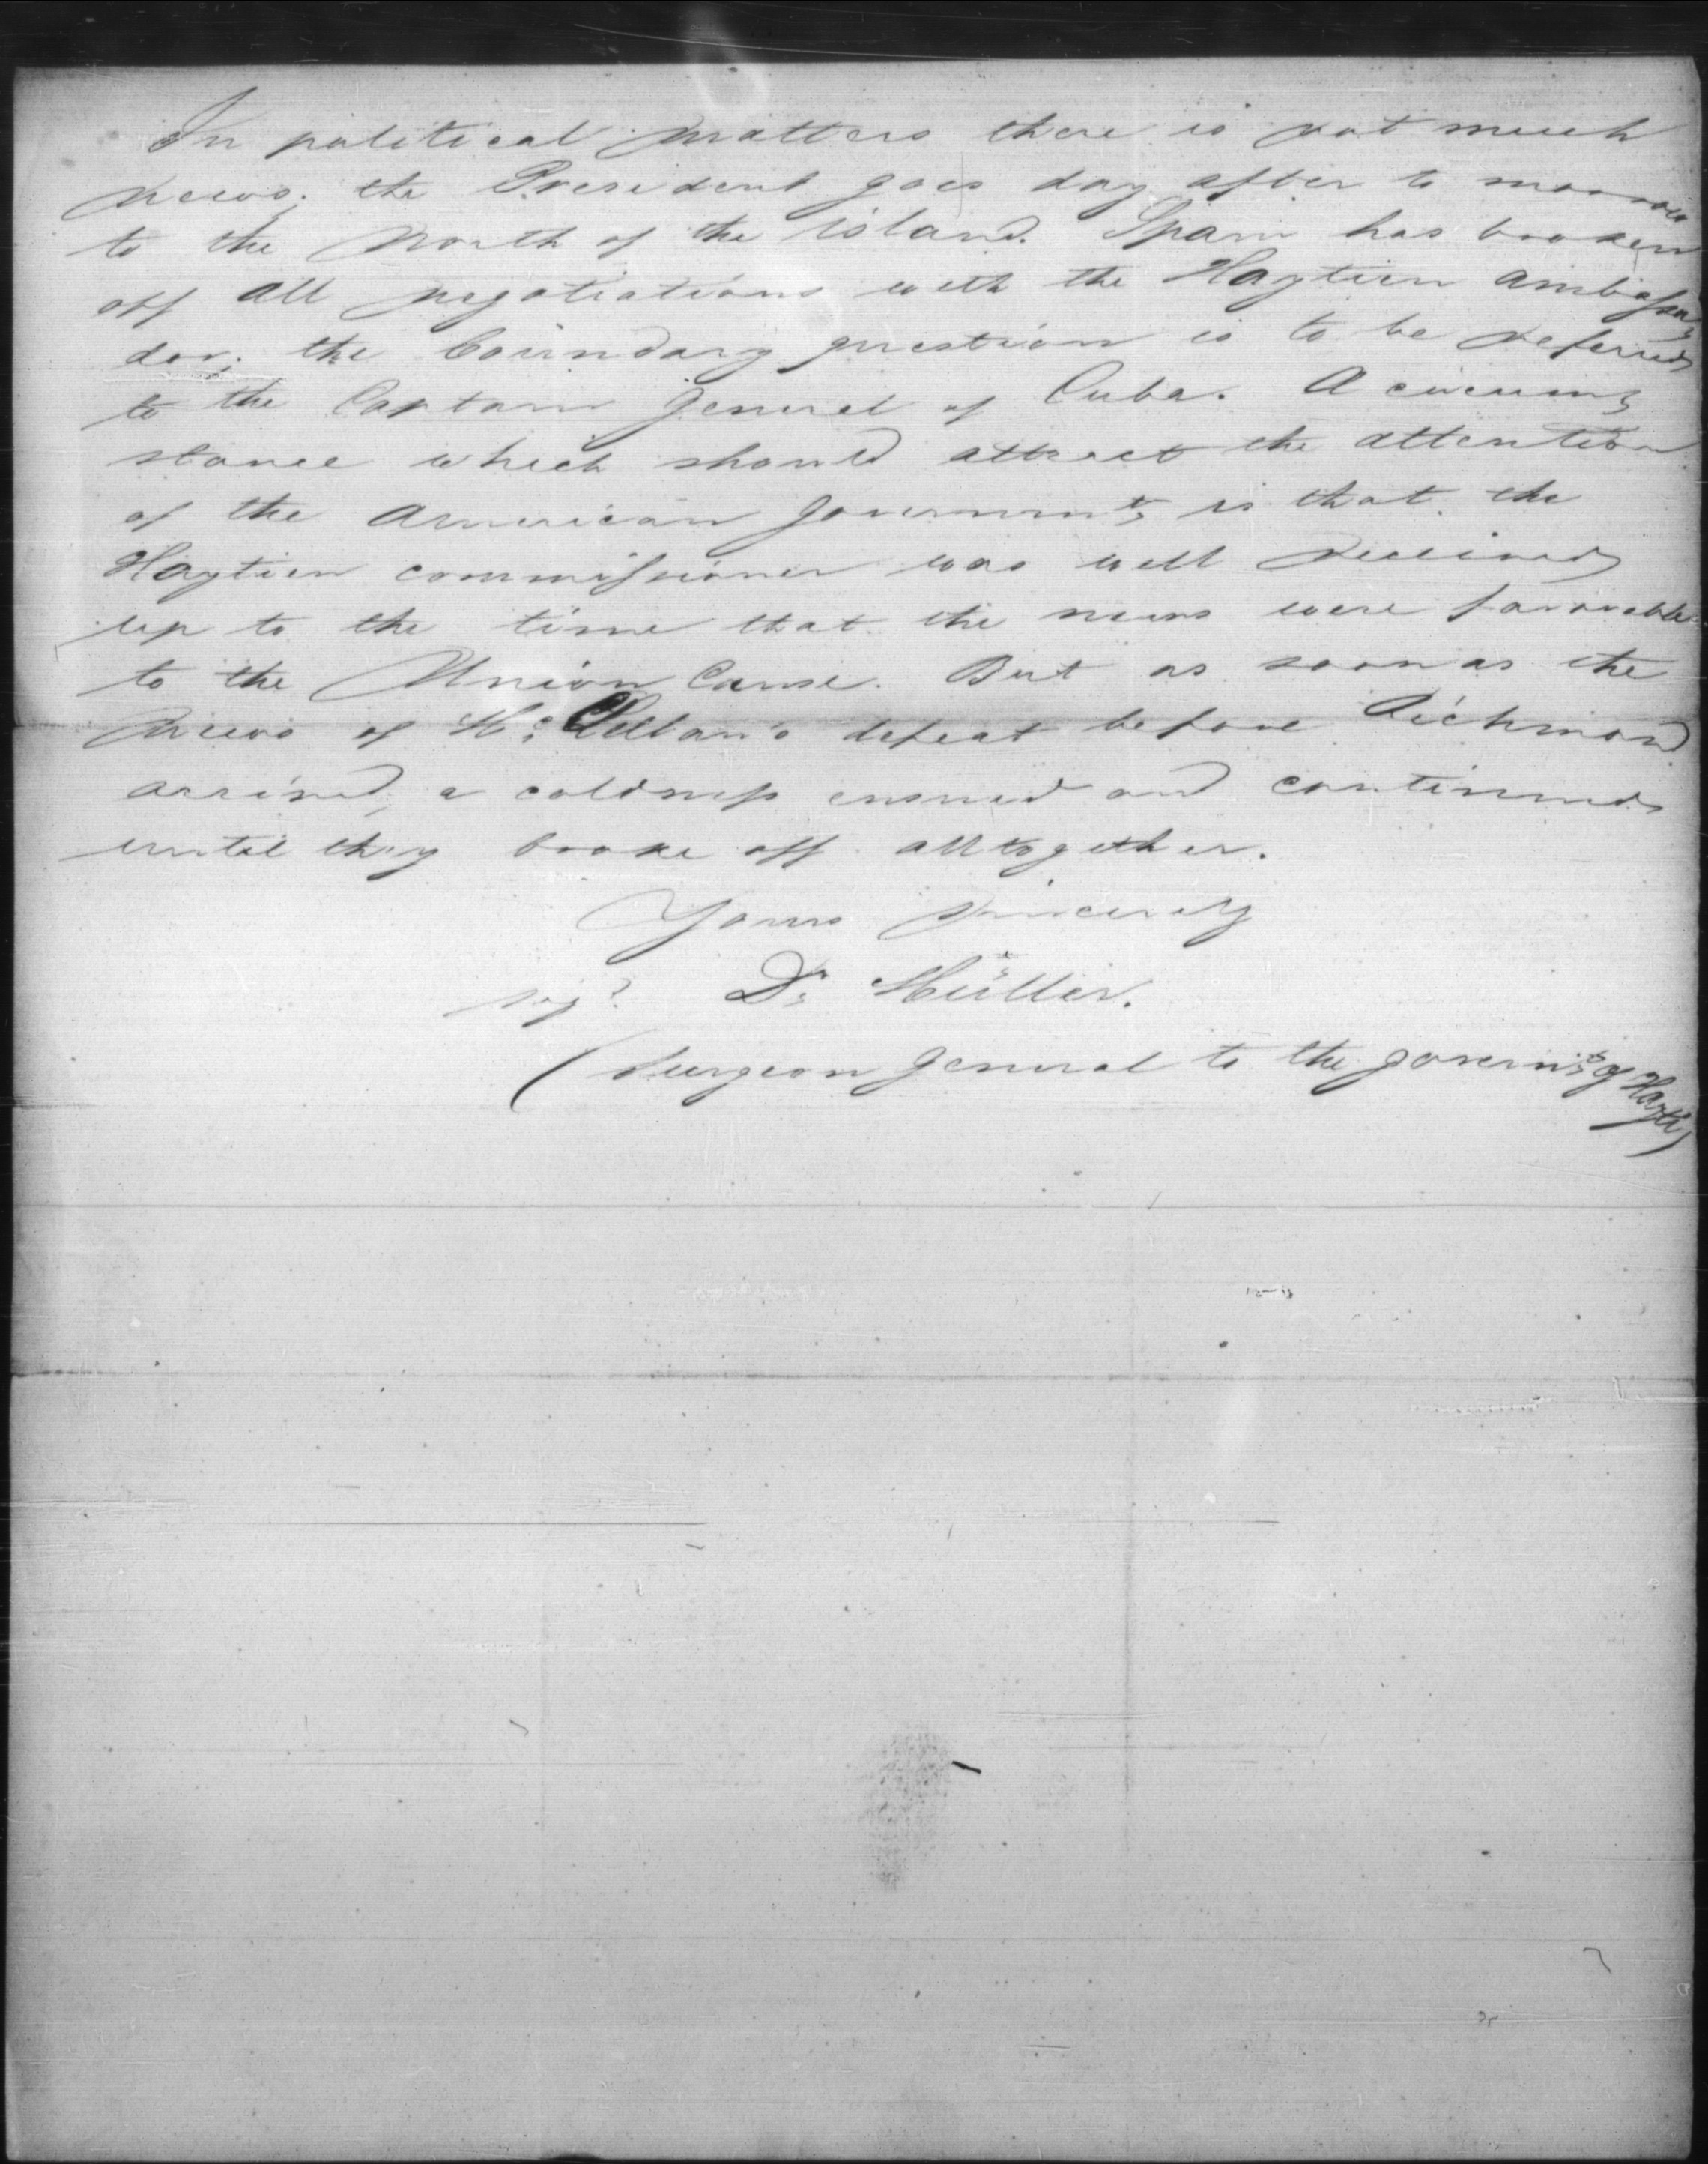 In political matters there is not much
news; the President goes day after to morrow
to the North of the island. Spain has broken
off all negotiations with the Haytien ambassa-
dor; the boundary question is to be referred
to the Captain General of Cuba. A circum-
stance which should attract the attention
of the American Governmt, is that the
Haytien commissioner was well received
up to the time that the news were favorable
to the Union Cause. But as soon as the
news of Mc. Clellan's defeat before Richmond
arrived, a coldness ensued and continued
until they broke off alltogether.
Yours sincerely
sigd Dr Müller.
(Surgeon General to the governmt of Hayti)